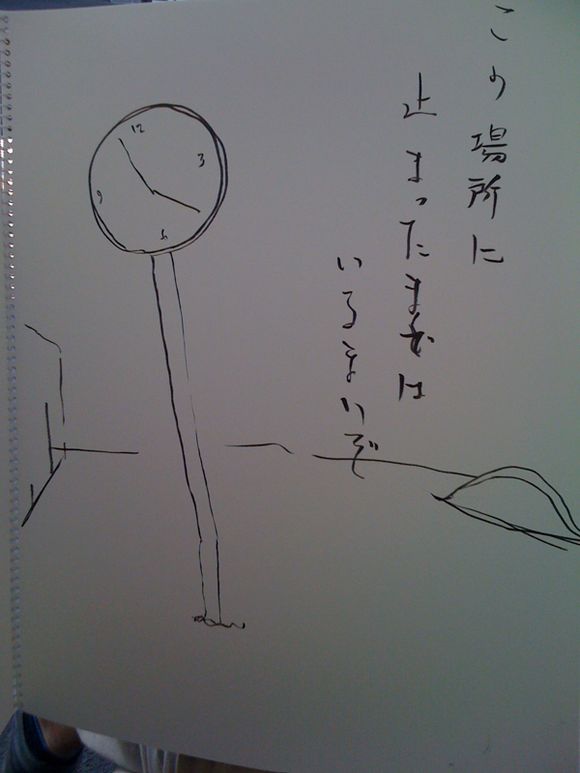 この場所に
止まったままは
いるまいぞ
12
3
6
9